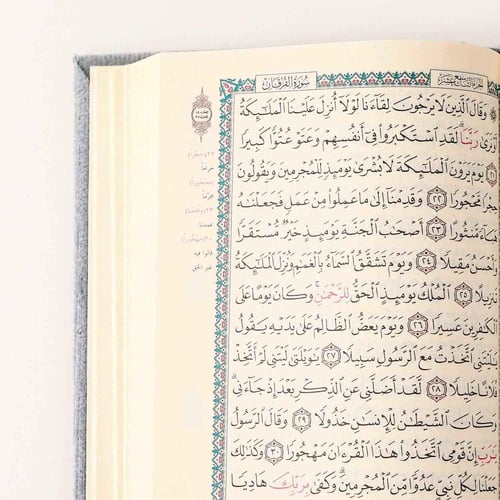 الجزء التاسع عشر
سُورَةُ الفُرْقَان
وَقَالَ ٱلَّذِينَ لَا يَرْجُونَ لِقَآءَنَا لَوْلَآ أُنزِلَ عَلَيْنَا ٱلْمَلَٰٓئِكَةُ
نَرَىٰ رَبَّنَا ۗ لَقَدِ ٱسْتَكْبَرُوا۟ فِىٓ أَنفُسِهِمْ وَعَتَوْ عُتُوًّا كَبِيرًا
٢١ يَوْمَ يَرَوْنَ ٱلْمَلَٰٓئِكَةَ لَا بُشْرَىٰ يَوْمَئِذٍ لِّلْمُجْرِمِينَ وَيَقُولُونَ
حِجْرًا مَّحْجُورًا ٢٢ وَقَدِمْنَآ إِلَىٰ مَا عَمِلُوا۟ مِنْ عَمَلٍ فَجَعَلْنَٰهُ
هَبَآءً مَّنثُورًا ٢٣ أَصْحَٰبُ ٱلْجَنَّةِ يَوْمَئِذٍ خَيْرٌ مُّسْتَقَرًّا
وَأَحْسَنُ مَقِيلًا ٢٤ وَيَوْمَ تَشَقَّقُ ٱلسَّمَآءُ بِٱلْغَمَٰمِ وَنُزِّلَ ٱلْمَلَٰٓئِكَةُ
تَنزِيلًا ٢٥ ٱلْمُلْكُ يَوْمَئِذٍ ٱلْحَقُّ لِلرَّحْمَٰنِ ۚ وَكَانَ يَوْمًا عَلَى
ٱلْكَٰفِرِينَ عَسِيرًا ٢٦ وَيَوْمَ يَعَضُّ ٱلظَّالِمُ عَلَىٰ يَدَيْهِ يَقُولُ
يَٰلَيْتَنِى ٱتَّخَذْتُ مَعَ ٱلرَّسُولِ سَبِيلًا ٢٧ يَٰوَيْلَتَىٰ لَيْتَنِى لَمْ أَتَّخِذْ
فُلَانًا خَلِيلًا ٢٨ لَّقَدْ أَضَلَّنِى عَنِ ٱلذِّكْرِ بَعْدَ إِذْ جَآءَنِى ۗ
وَكَانَ ٱلشَّيْطَٰنُ لِلْإِنسَٰنِ خَذُولًا ٢٩ وَقَالَ ٱلرَّسُولُ
يَٰرَبِّ إِنَّ قَوْمِى ٱتَّخَذُوا۟ هَٰذَا ٱلْقُرْءَانَ مَهْجُورًا ٣٠ وَكَذَٰلِكَ
جَعَلْنَا لِكُلِّ نَبِىٍّ عَدُوًّا مِّنَ ٱلْمُجْرِمِينَ ۗ وَكَفَىٰ بِرَبِّكَ هَادِيًا
(محجوراً)
عمدنا
(مهجوراً)
قالوا فيه
غير الحق